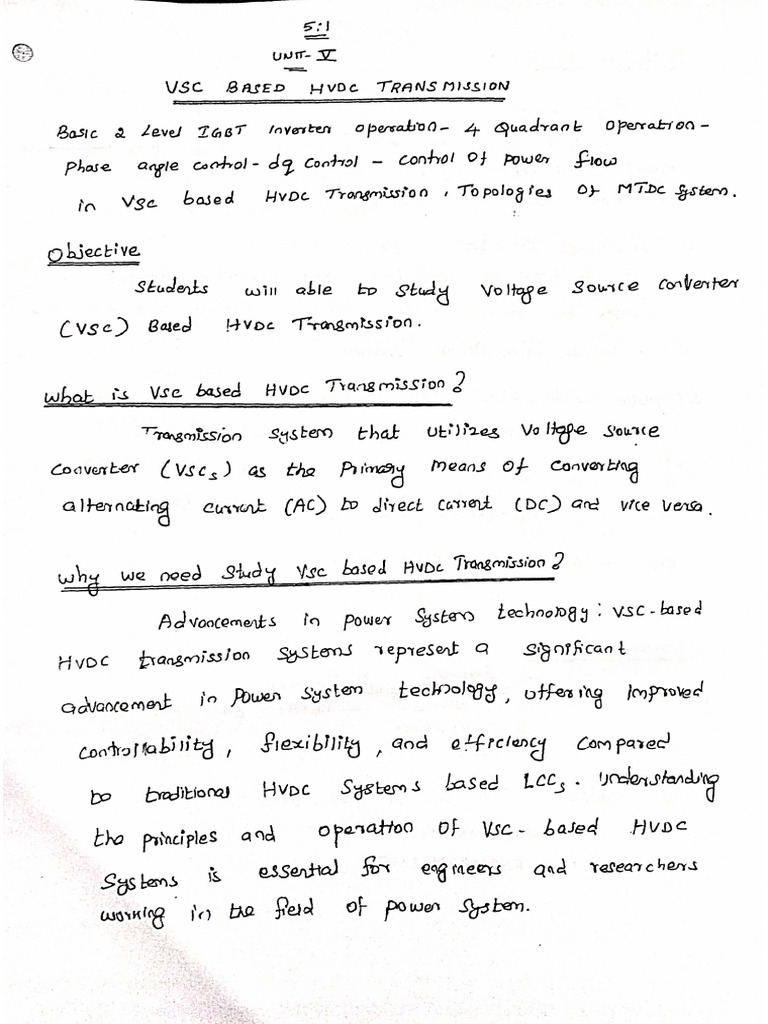 5:1
UNIT- V
VSC BASED HVDC TRANSMISSION
Basic 2 Level IGBT Inverter operation- 4 Quadrant operation-
Phase angle control- dq control - control of power flow
in VSC based HVDC Transmission, Topologies of MTDC System.
Objective
Students will able to study Voltage Source Converter
(VSC) Based HVDC Transmission.
What is VSC based HVDC Transmission?
Transmission System that utilizes Voltage source
converter (VSCs) as the Primary means of converting
alternating current (AC) to direct current (DC) and vice versa.
Why we need study VSC based HVDC Transmission?
Advancements in power System technology: VSC-based
HVDC transmission systems represent a significant
advancement in Power System technology, offering improved
controllability, flexibility, and efficiency compared
to traditional HVDC Systems based LCCs. Understanding
the principles and operation of VSC- based HVDC
Systems is essential for engineers and researchers
working in the field of power System.